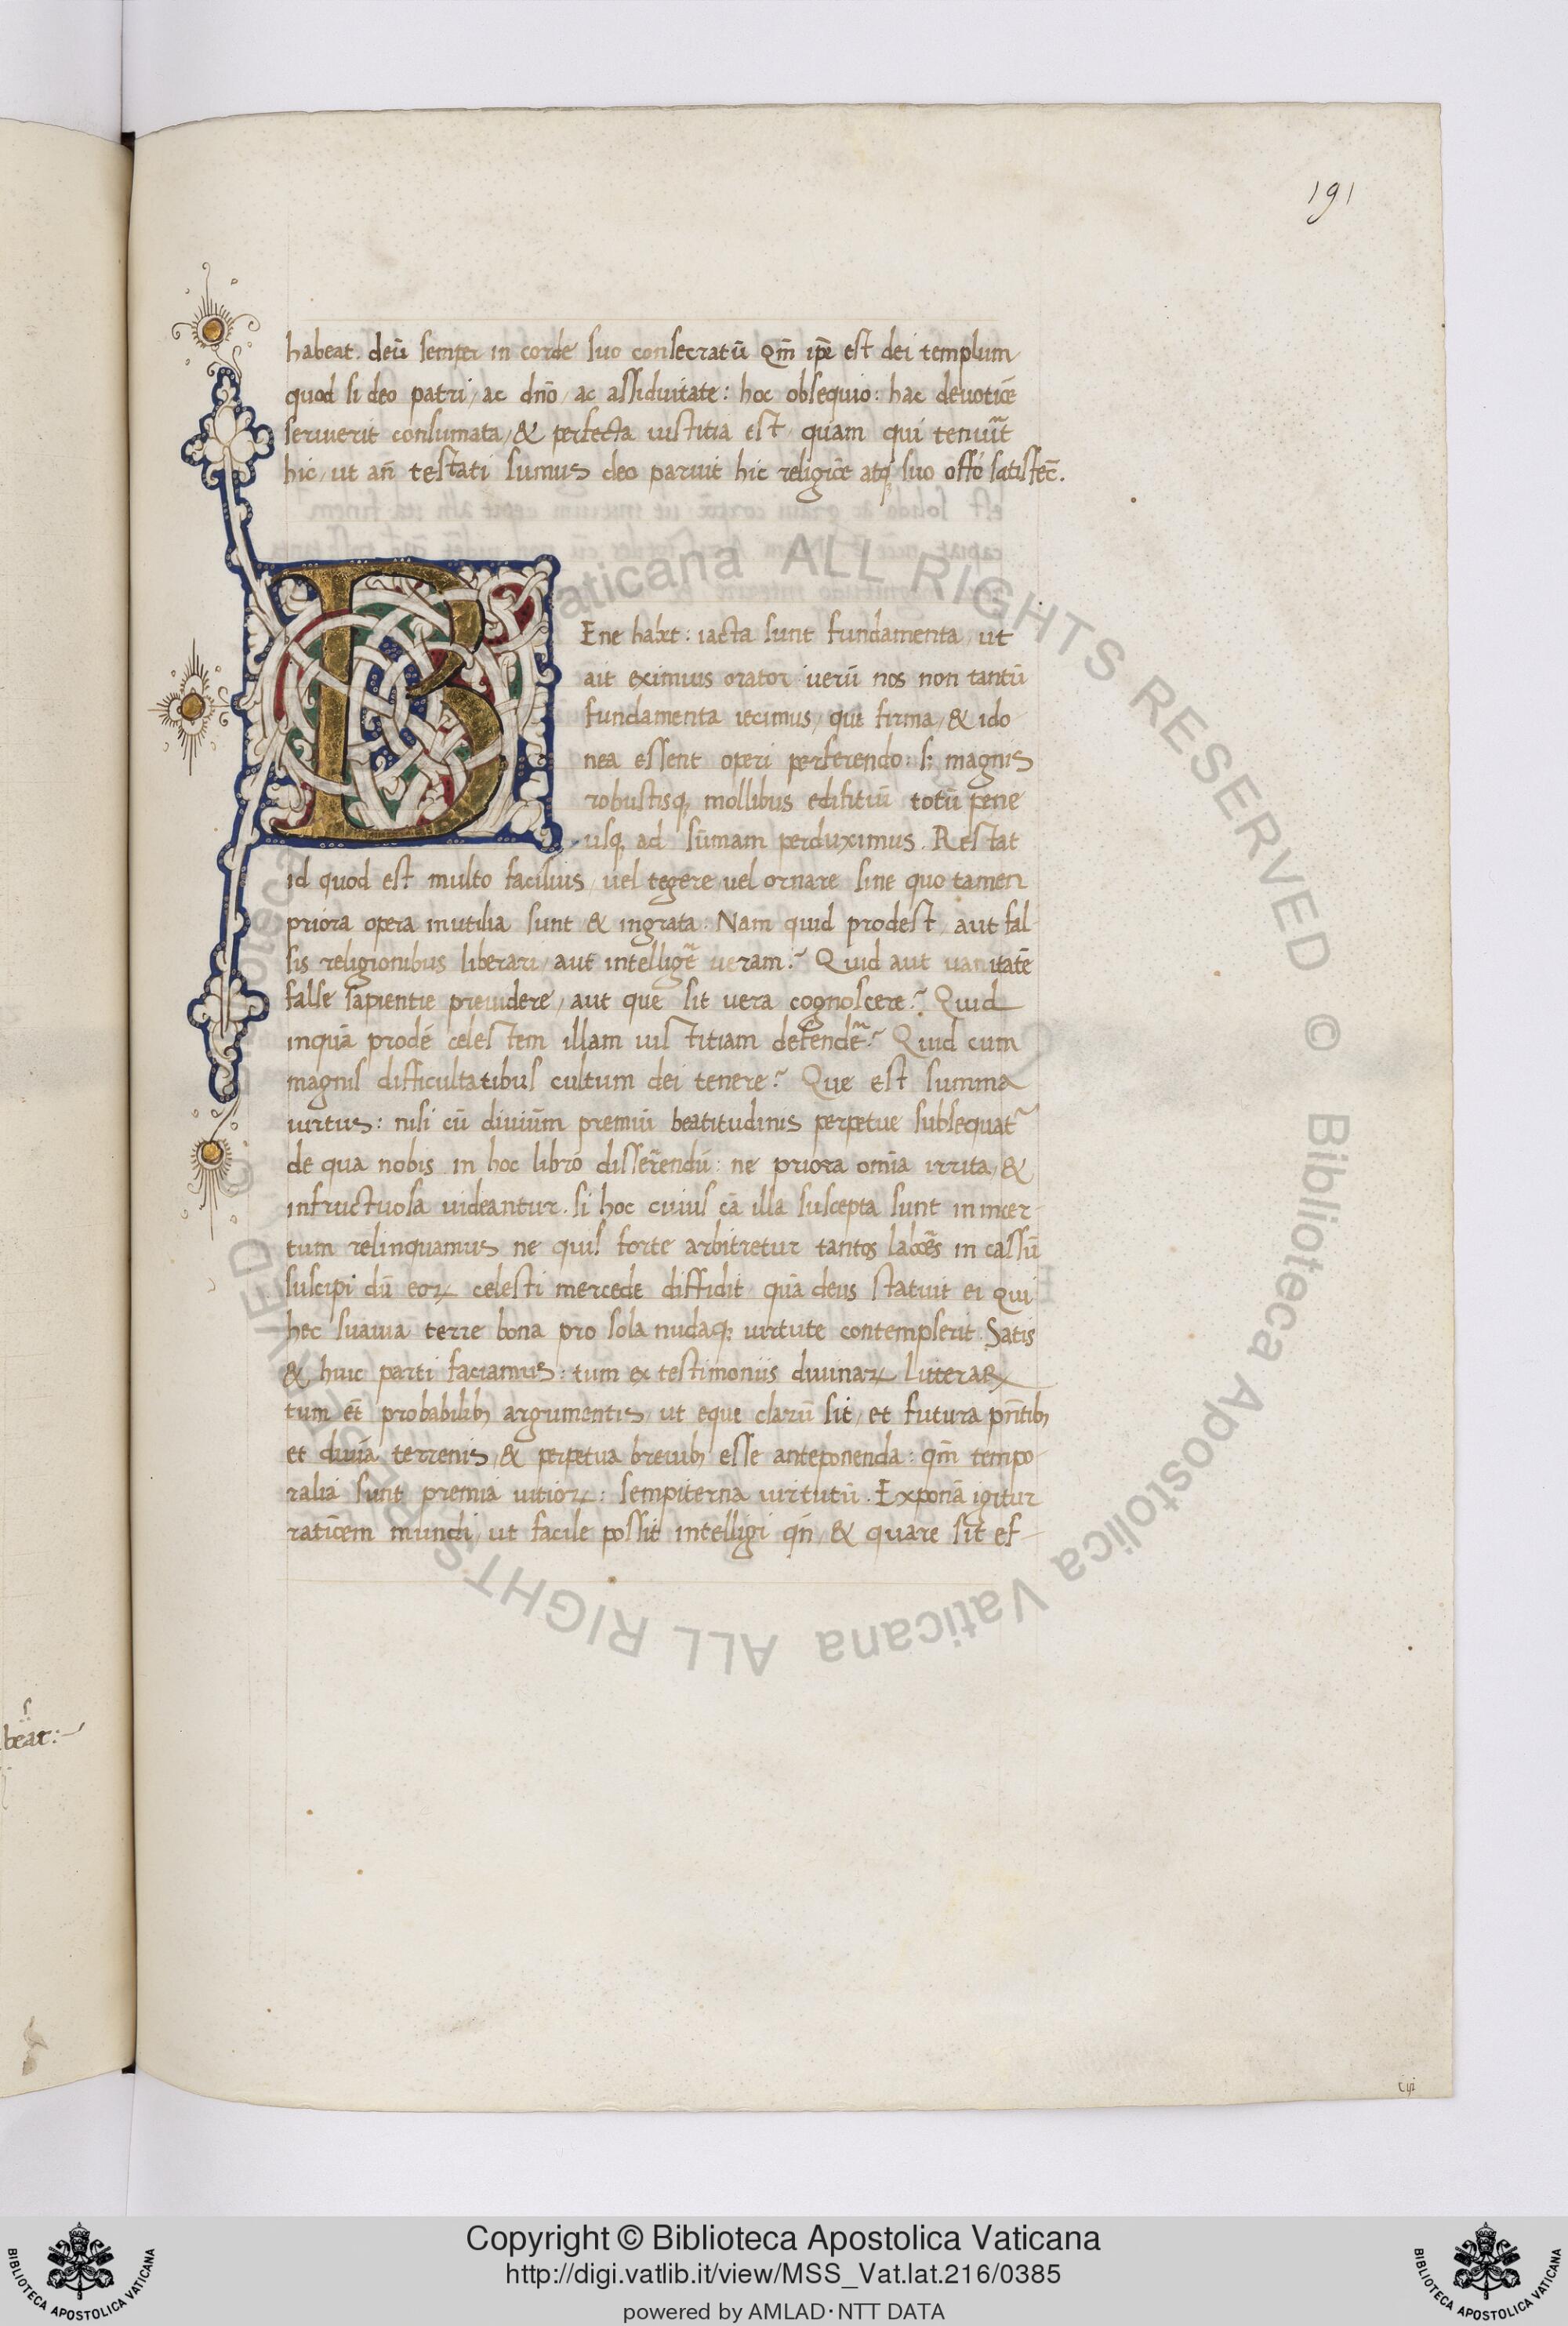 191
habeat. deū semper in corde suo consecratū qm̄ ipē est dei templum
quod si deo patri, ac dn̄o, ac assiduitate: hoc obsequio: hac deuotiōe
seruierit consumata, & perfecta iustitia est quam qui tenuīt
hic, ut an̄ testati sumus deo paruit hic religiōe atq; suo offō satisfec̄.
BEne habet: iacta sunt fundamenta ut
ait eximius orator uerū nos non tantū
fundamenta iecimus, que firma, & ido
nea essent operi perferendo: s: magnis
robustisq; mollibus edifitiū totū pene
usq; ad sūmam perduximus. Restat
id quod est multo facilius, uel tegere uel ornare sine quo tamen
priora opera inutilia sunt & ingrata. Nam quid prodest, aut fal-
sis religionibus liberari, aut intellige᷑ ueram? Quid aut uanitatē
false sapientie preuidere, aut que sit uera cognoscere? Quid
inquā prodē celestem illam iustitiam defende᷑? Quid cum
magnis difficultatibus cultum dei tenere? Que est summa
uirtus: nisi cū diuiūm premiū beatitudinis perpetue subsequat᷑
de qua nobis in hoc libro disserēndū: ne priora omīa irrita, &
infructuosa uideantur. si hoc cuius cā illa suscepta sunt in incer-
tum relinquamus ne quis forte arbitretur tantos labōes in cassū
suscipi dū eoꝝ celesti mercede diffidit quā deus statuit ei qui
hec suauia terre bona pro sola nudaq; uirtute contempserit. Satis
& huic parti faciamus: tum ex testimoniis diuinaꝝ litteraꝝ
tum et̄ probabilibꝫ argumentis, ut eque clarū sit, et futura pn̄tibꝫ
et diuīa terrenis, & perpetua breuibꝫ esse anteponenda: qm̄ tempo-
ralia sunt premia uitioꝝ: sempiterna uirtutū. Exponā igitur
ratiōem mundi, ut facile possit intelligi qn̄, & quare sit ef-
beat:
Biblioteca Apostolica Vaticana ALL RIGHTS RESERVED ©
Copyright © Biblioteca Apostolica Vaticana
http://digi.vatlib.it/view/MSS_Vat.lat.216/0385
powered by AMLAD・NTT DATA
BIBLIOTECA APOSTOLICA VATICANA
BIBLIOTECA APOSTOLICA VATICANA